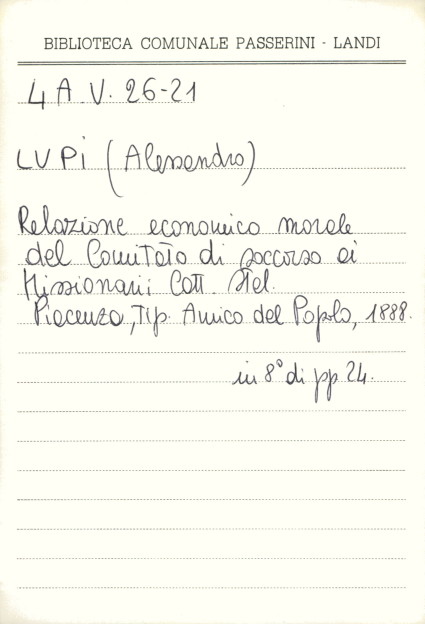 BIBLIOTECA COMUNALE PASSERINI - LANDI
4 A. V. 26-21
LUPI (Alessandro)
Relazione economico morale
del Comitato di soccorso ai
Missionarii Catt. Ital.
Piacenza, Tip. Amico del Popolo, 1888.
in 8° di pp 24.